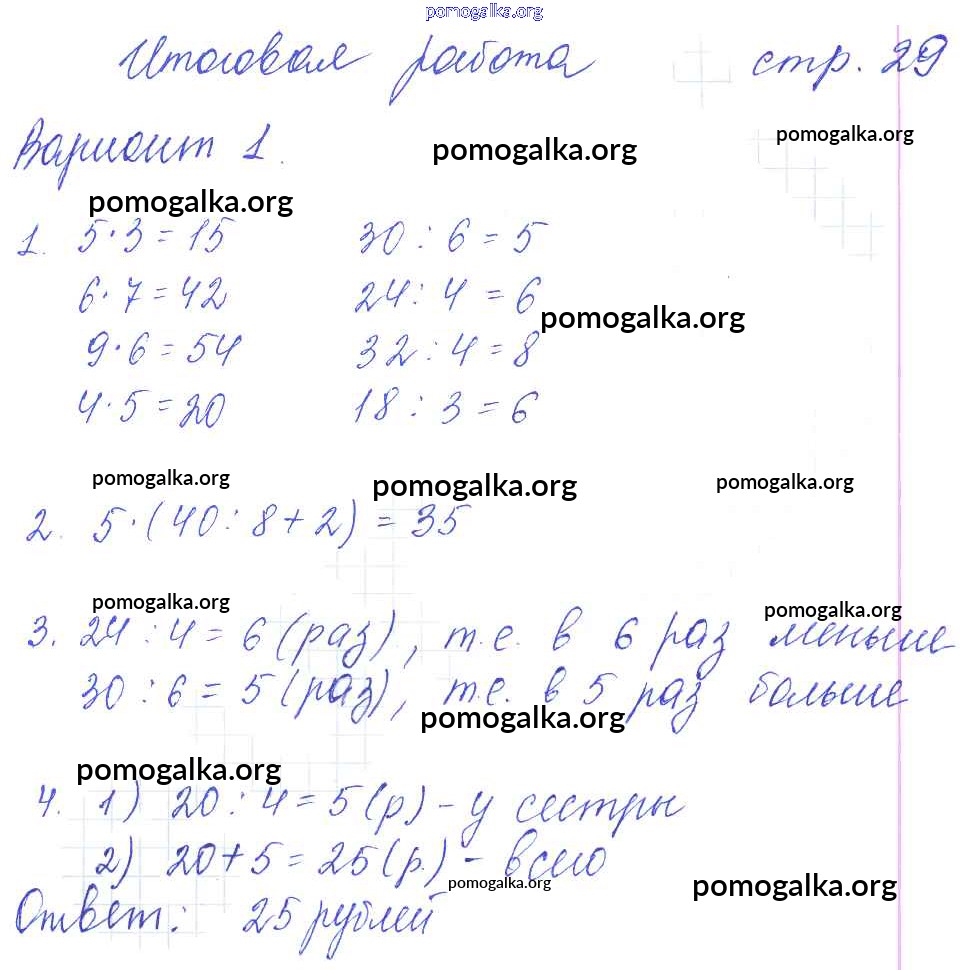 pomogalka.org
Итоговая работа стр. 29
pomogalka.org
Вариант 1. pomogalka.org
pomogalka.org
1. 5·3=15 30:6=5
6·7=42 24:4=6
pomogalka.org
9·6=54 32:4=8
4·5=20 18:3=6
pomogalka.org pomogalka.org pomogalka.org
2. 5·(40:8+2)=35
pomogalka.org pomogalka.org
3. 24:4=6(раз), т.е. в 6 раз меньше
30:6=5(раз), т.е. в 5 раз больше
pomogalka.org
pomogalka.org
4. 1) 20:4=5(р)-у сестры
2) 20+5=25(р.)-всего
pomogalka.org pomogalka.org
Ответ: 25 рублей